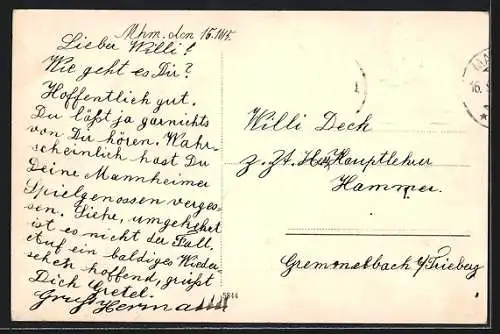 Mhm. den 16.
Lieber Willi!
Wie geht es Dir?
Hoffentlich gut.
Du läßt ja garnichts
von Dir hören. Wahr-
scheinlich hast Du
Deine Mannheimer
Spielgenossen verges-
sen. Siehe, umgekehrt
ist es nicht der Fall.
Auf ein baldiges Wieder-
sehen hoffend, grüßt
Dich Gretel.
Gruß Herma
Willi Deck
z. Zt. Hauptlehrer
Hammer.
Gremmelsbach b/Trieberg